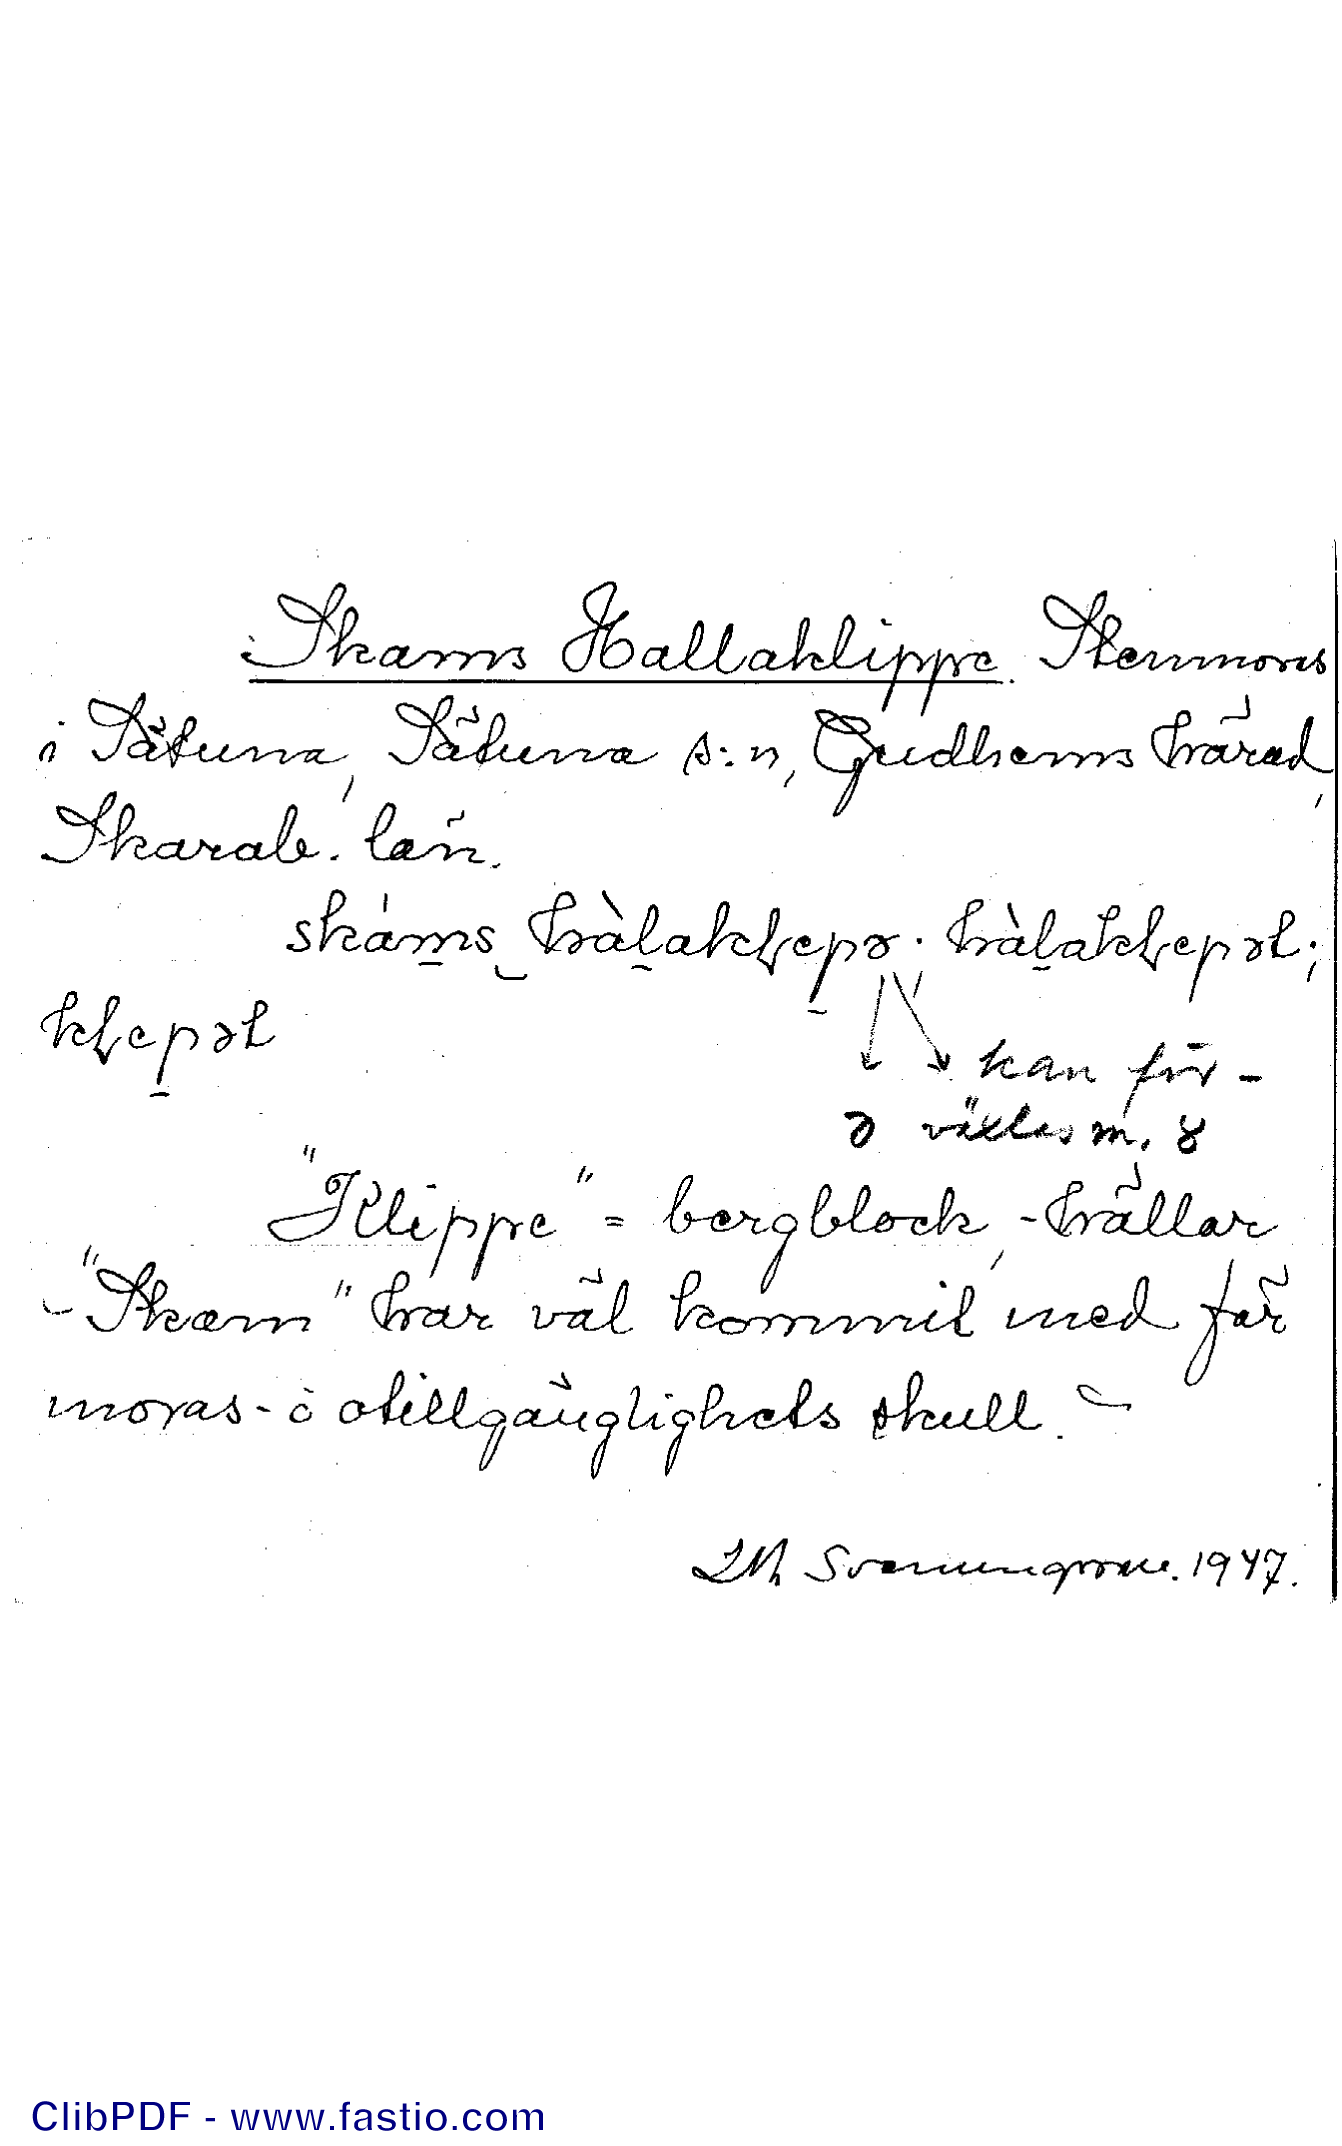 Skams Hallaklippe. Stenmoras
i Sätuna, Sätuna s:n, Gudhems härad,
Skarab. län.
skáms hàlaklepə; hàlaklepət;
klepət
kan för-
ə växlas m. 8
"Klippe" = bergblock, -hällar
-"Skam" har väl kommit med för
moras- o otillgänglighets skull. -
Svenungsson. 1947.
ClibPDF - www.fastio.com